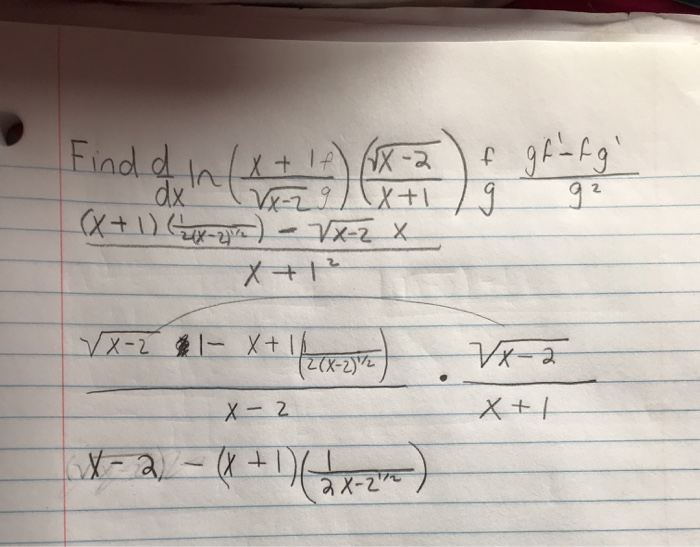 Find d/dx ln ((x + 1 f)/(√x-2 g)) (√x-2/(x+1)) f/g (gf'-fg')/g²
((x+1)(1/(2(x-2)^1/2)) - √x-2 x)/(x+1²)
(√x-2 1- x+1(1/(2(x-2)^1/2)))/(x-2) · √x-2/(x+1)
x-2) - (x+1)(1/(2x-2^1/2))